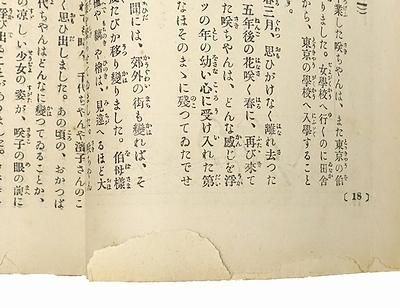 業した咲ちやんは、また東京の伯
りました。女學校へ行くのに田舎
から、東京の學校へ入學すること
す。
春三月、思ひがけなく離れ去つた
五年後の花咲く春に、再び来て
た咲ちやんは、どんな感じを浮
ツの年の幼い心に受け入れた第
なほそのまゝに残つてゐたでせ
間には、郊外の街も變れば、そ
度たびか移り變りました。伯母様
や檜は、見違へるほど大
千代ちやんや濱子さんのこ
く思ひ出しました。あの頃の、おかつぱ
代ちやんはどんなに變つてゐることか、
の凉しい少女の姿が、咲子の眼の前に
( 18 )